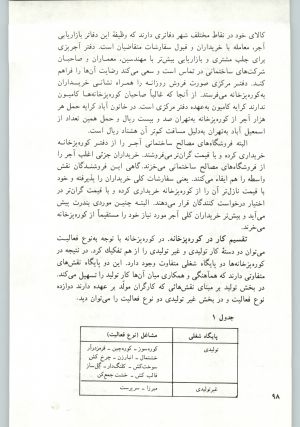 کالای خود در نقاط مختلف شهر دفاتری دارند که وظیفهٔ این دفاتر بازاریابی
آجر، معامله با خریداران و قبول سفارشات متقاضیان است. دفتر آجرپزی
برای جلب مشتری و بازاریابی بیش‌تر با مهندسین، معماران و صاحبان
شرکت‌های ساختمانی در تماس است و سعی می‌کند رضایت آن‌ها را فراهم
کند. دفتر مرکزی صورت فروش روزانه را همراه نشانی خریداران
به‌کوره‌پزخانه می‌فرستد. از آنجا که غالباً صاحبان کوره‌پزخانه‌ها کامیون
ندارند کرایه کامیون به‌عهده دفتر مرکزی است. در خاتون آباد کرایه حمل هر
هزار آجر از کوره‌پزخانه به‌تهران صد و بیست ریال و حمل همین تعداد از
اسمعیل آباد به‌تهران به‌دلیل مسافت کم‌تر آن هشتاد ریال است.
البته فروشگاه‌های مصالح ساختمانی آجر را از دفتر کوره‌پزخانه
خریداری کرده و با قیمت گران‌تر می‌فروشند. خریداران جزئی اغلب آجر را
از فروشگاه‌های مصالح ساختمانی می‌خرند. گاهی این فروشندگان نقش
واسطه را هم ایفاء می‌کنند. یعنی سفارشات کلی خریداران را پذیرفته و خود
با قیمت نازل‌تر آن را از کوره‌پزخانه خریداری کرده و با قیمت گران‌تر در
اختیار درخواست کنندگان قرار می‌دهند. البته چنین موردی بندرت پیش
می‌آید و بیش‌تر خریداران کلی آجر مورد نیاز خود را مستقیماً از کوره‌پزخانه
می‌خرند.
تقسیم کار در کوره‌پزخانه. در کوره‌پزخانه با توجه به‌نوع فعالیت
می‌توان دو دستهٔ کار تولیدی و غیر تولیدی را از هم تفکیک کرد. در نتیجه در
کوره‌پزخانه‌ها دو پایگاه شغلی متفاوت وجود دارد. این دو پایگاه نقش‌های
متفاوتی دارند که هماهنگی و همکاری میان آن‌ها کار تولید را تسهیل می‌کند.
در بخش تولید بر مبنای نقش‌هائی که کارگران مولّد بر عهده دارند دوازده
نوع فعالیت و در بخش غیر تولیدی دو نوع فعالیت را می‌توان دید:
جدول ۱
پایگاه شغلی مشاغل (نوع فعالیت)
تولیدی کوره‌سوز - کوره‌چین - قرمزدرآر
خشتمال - انبارزن - چرخ کش
سوخت‌کش - کلنگ‌دار - گل‌ساز
قالب کش - خشت جمع‌کن
غیرتولیدی میرزا - سرپرست
۹۸